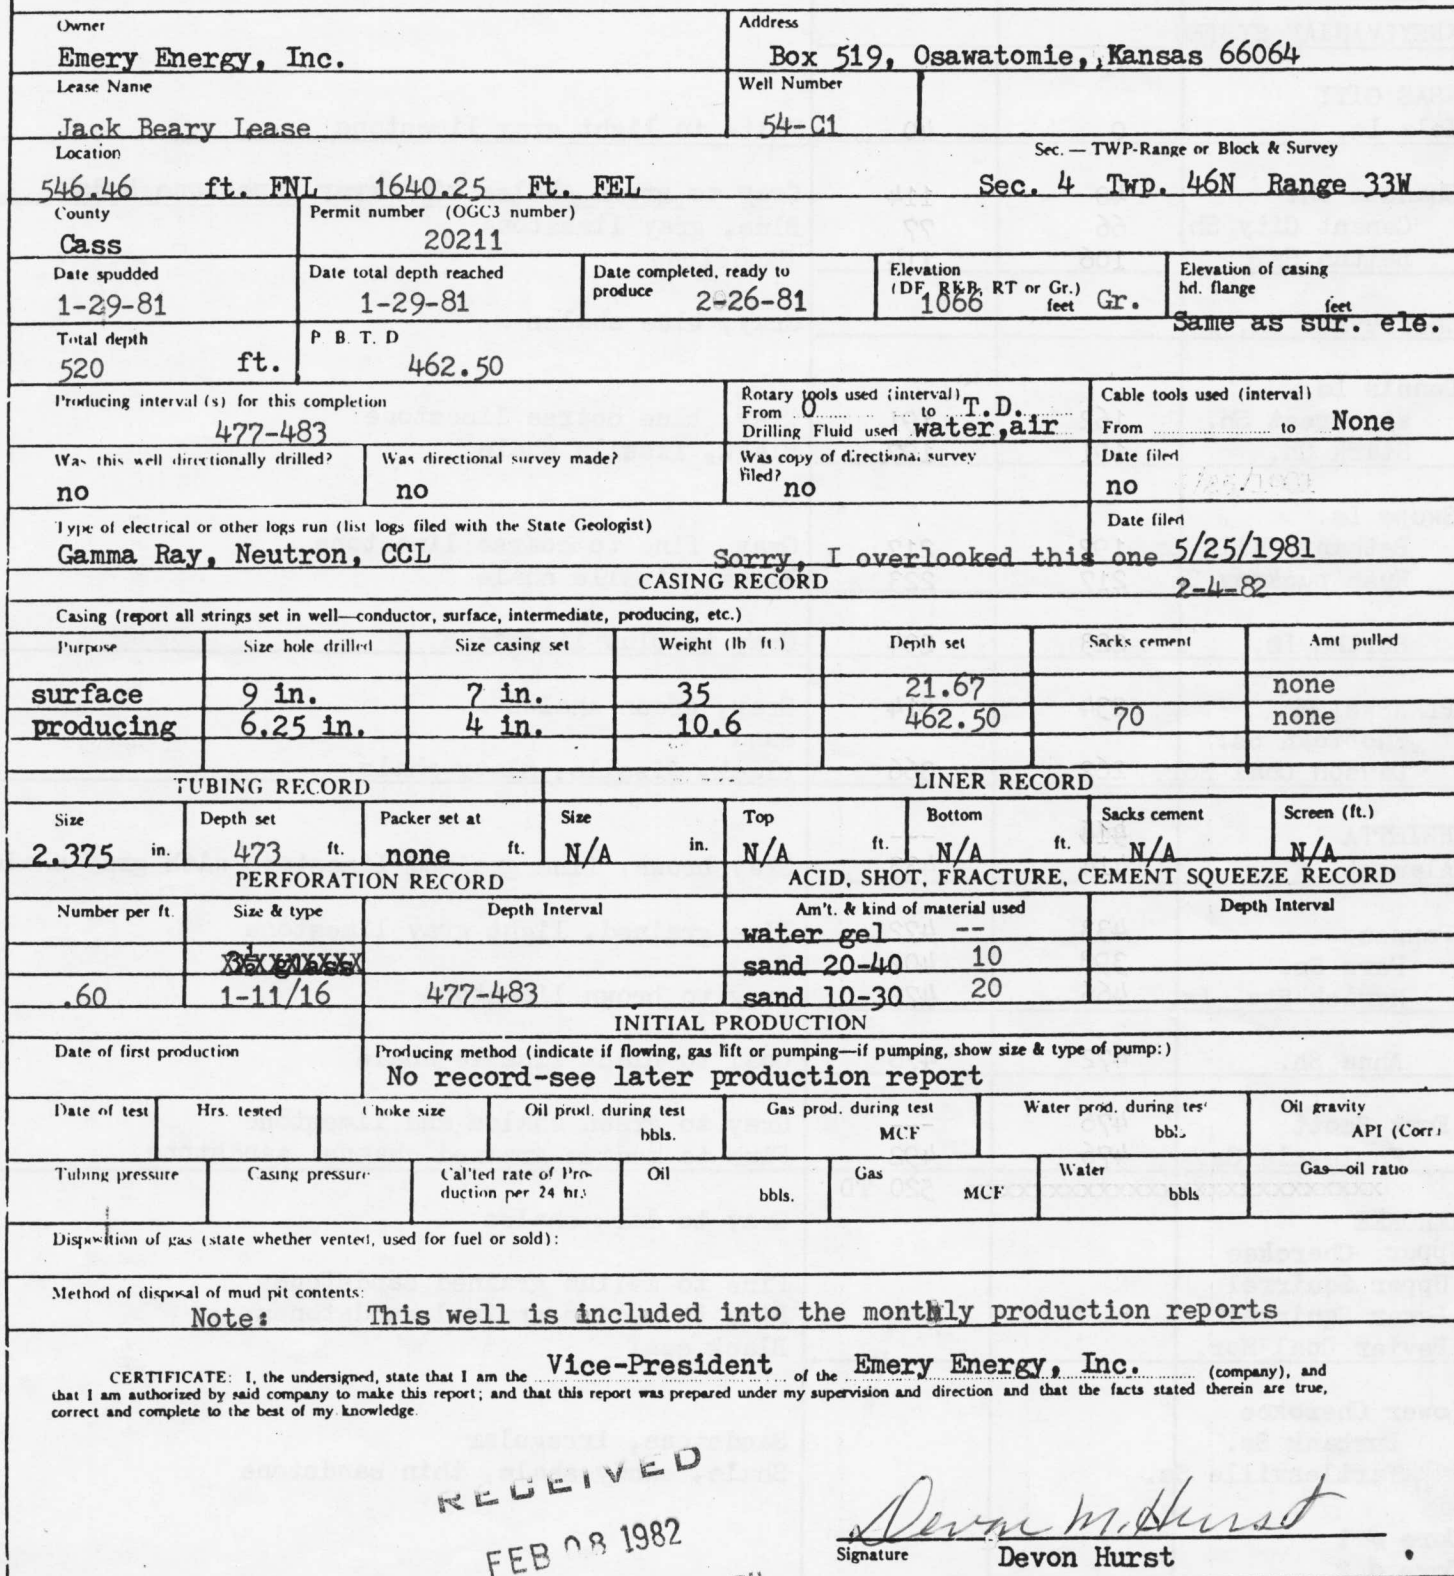 Owner
Emery Energy, Inc.
Address
Box 519, Osawatomie, Kansas 66064
Lease Name
Jack Beary Lease
Well Number
54-C1
Location
546.46 ft. FNL 1640.25 Ft. FEL
Sec. — TWP-Range or Block & Survey
Sec. 4 Twp. 46N Range 33W
County
Cass
Permit number (OGC3 number)
20211
Date spudded
1-29-81
Date total depth reached
1-29-81
Date completed, ready to produce
2-26-81
Elevation
(DF, RKB, RT or Gr.)
1066 feet Gr.
Elevation of casing hd. flange
feet
Same as sur. ele.
Total depth
520 ft.
P. B. T. D
462.50
Producing interval (s) for this completion
477-483
Rotary tools used (interval)
From 0 to T.D.
Drilling Fluid used water,air
Cable tools used (interval)
From to None
Was this well directionally drilled?
no
Was directional survey made?
no
Was copy of directional survey filed?
no
Date filed
no
Type of electrical or other logs run (list logs filed with the State Geologist)
Gamma Ray, Neutron, CCL Sorry, I overlooked this one
Date filed
5/25/1981
2-4-82
CASING RECORD
Casing (report all strings set in well—conductor, surface, intermediate, producing, etc.)
Purpose Size hole drilled Size casing set Weight (lb ft.) Depth set Sacks cement Amt pulled
surface 9 in. 7 in. 35 21.67 none
producing 6.25 in. 4 in. 10.6 462.50 70 none
TUBING RECORD
LINER RECORD
Size Depth set Packer set at Size Top Bottom Sacks cement Screen (ft.)
2.375 in. 473 ft. none ft. N/A in. N/A ft. N/A ft. N/A N/A
PERFORATION RECORD
ACID, SHOT, FRACTURE, CEMENT SQUEEZE RECORD
Number per ft. Size & type Depth Interval Am't. & kind of material used Depth Interval
water gel --
sand 20-40 10
.60 1-11/16 477-483 sand 10-30 20
INITIAL PRODUCTION
Date of first production
Producing method (indicate if flowing, gas lift or pumping—if pumping, show size & type of pump:)
No record-see later production report
Date of test Hrs. tested Choke size Oil prod. during test Gas prod. during test Water prod. during test Oil gravity
bbls. MCF bbls. API (Corr)
Tubing pressure Casing pressure Cal'ted rate of Production per 24 hrs Oil Gas Water Gas—oil ratio
bbls. MCF bbls
Disposition of gas (state whether vented, used for fuel or sold):
Method of disposal of mud pit contents:
Note: This well is included into the monthly production reports
CERTIFICATE: I, the undersigned, state that I am the Vice-President of the Emery Energy, Inc. (company), and
that I am authorized by said company to make this report; and that this report was prepared under my supervision and direction and that the facts stated therein are true,
correct and complete to the best of my knowledge.
RECEIVED
FEB 08 1982
Devon M. Hurst
Signature Devon Hurst